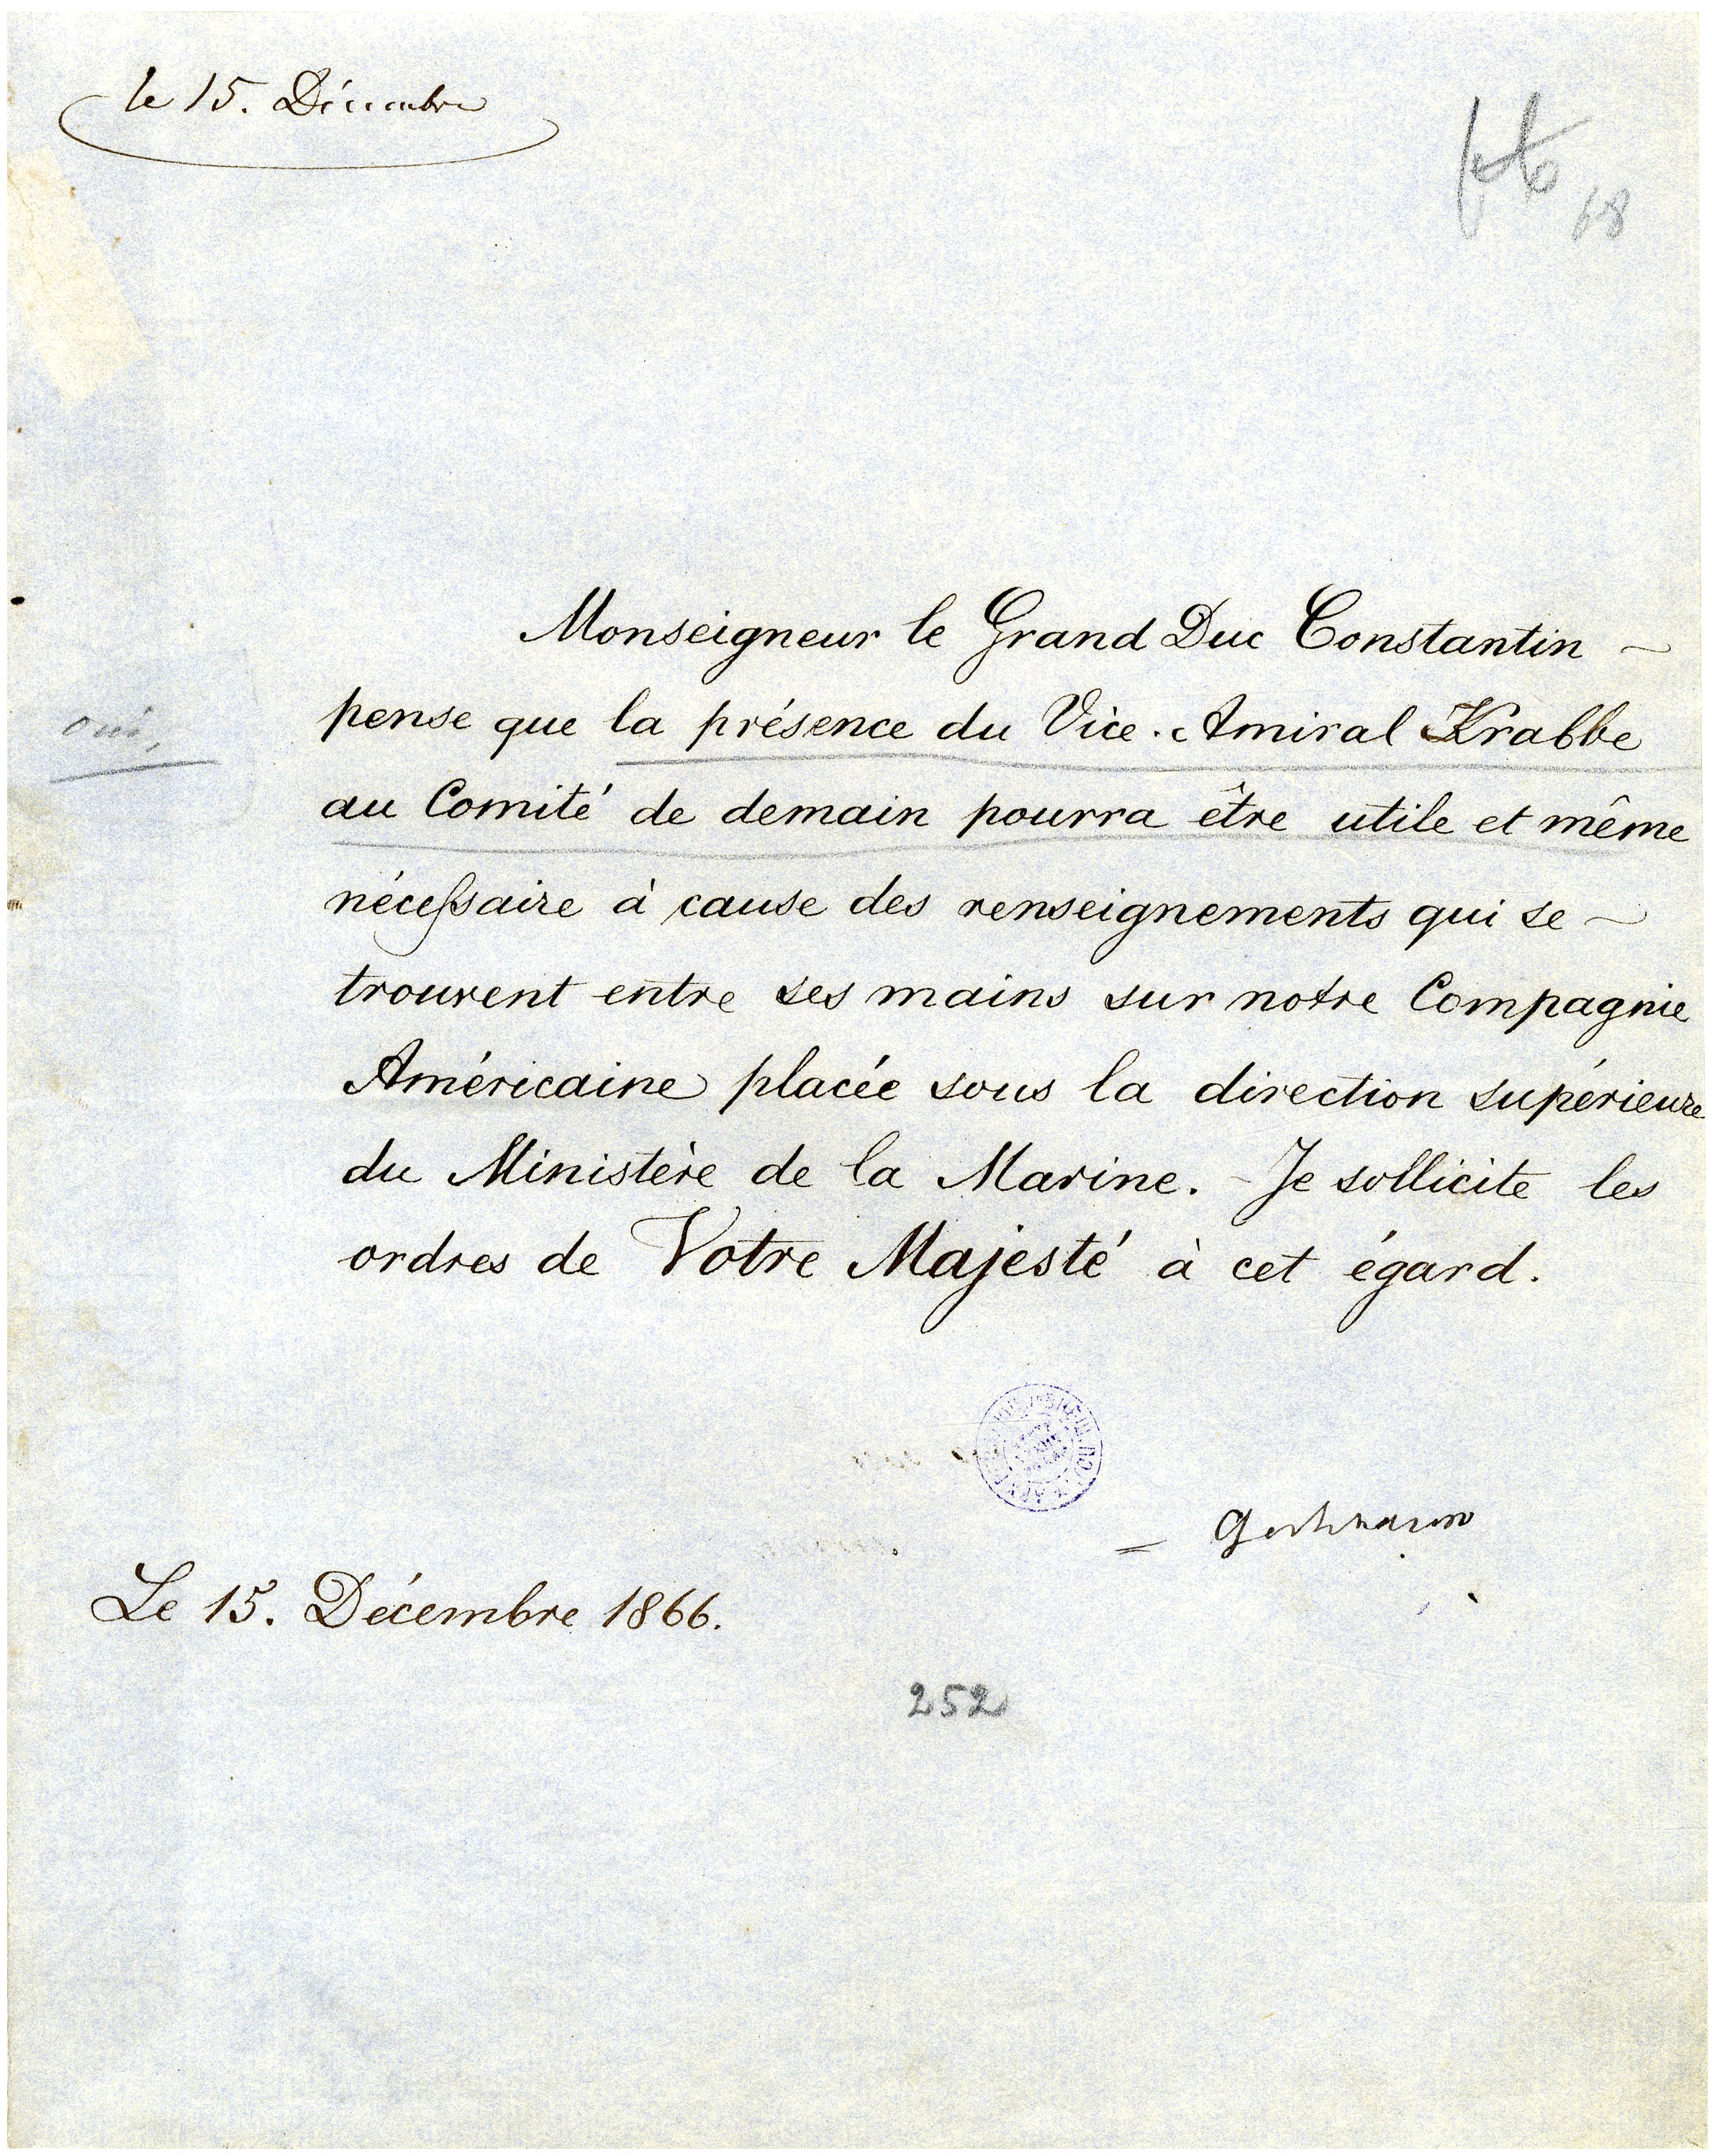 le 15. Décembre
68
Monseigneur le Grand Duc Constantin
oui,
pense que la présence du Vice-Amiral Krabbe
au Comité de demain pourra être utile et même
nécessaire à cause des renseignements qui se
trouvent entre ses mains sur notre Compagnie
Américaine placée sous la direction supérieure
du Ministère de la Marine. - Je sollicite les
ordres de Votre Majesté à cet égard.
Gortchacow
Le 15. Décembre 1866.
252